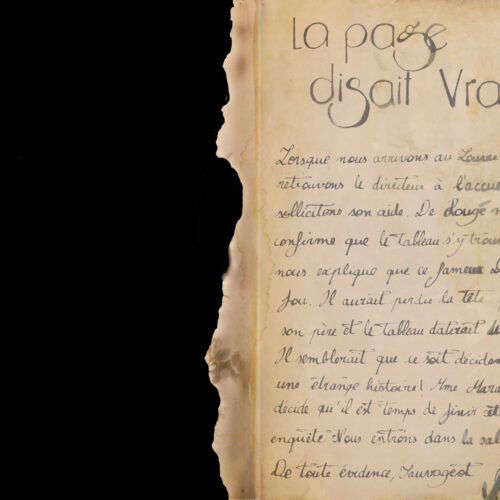 La page
disait Vra
Lorsque nous arrivons au Louvre
retrouvons le directeur à l'accue
sollicitons son aide. De Rougé n
confirme que le tableau s'y trouv
nous explique que ce fameux
fou. Il aurait perdu la tête
son père et le tableau daterait de
Il semblerait que ce soit décidem
une étrange histoire! Mme Mara
décide qu'il est temps de finir cet
enquête Nous entrons dans la sal
De toute évidence, Sauvageot